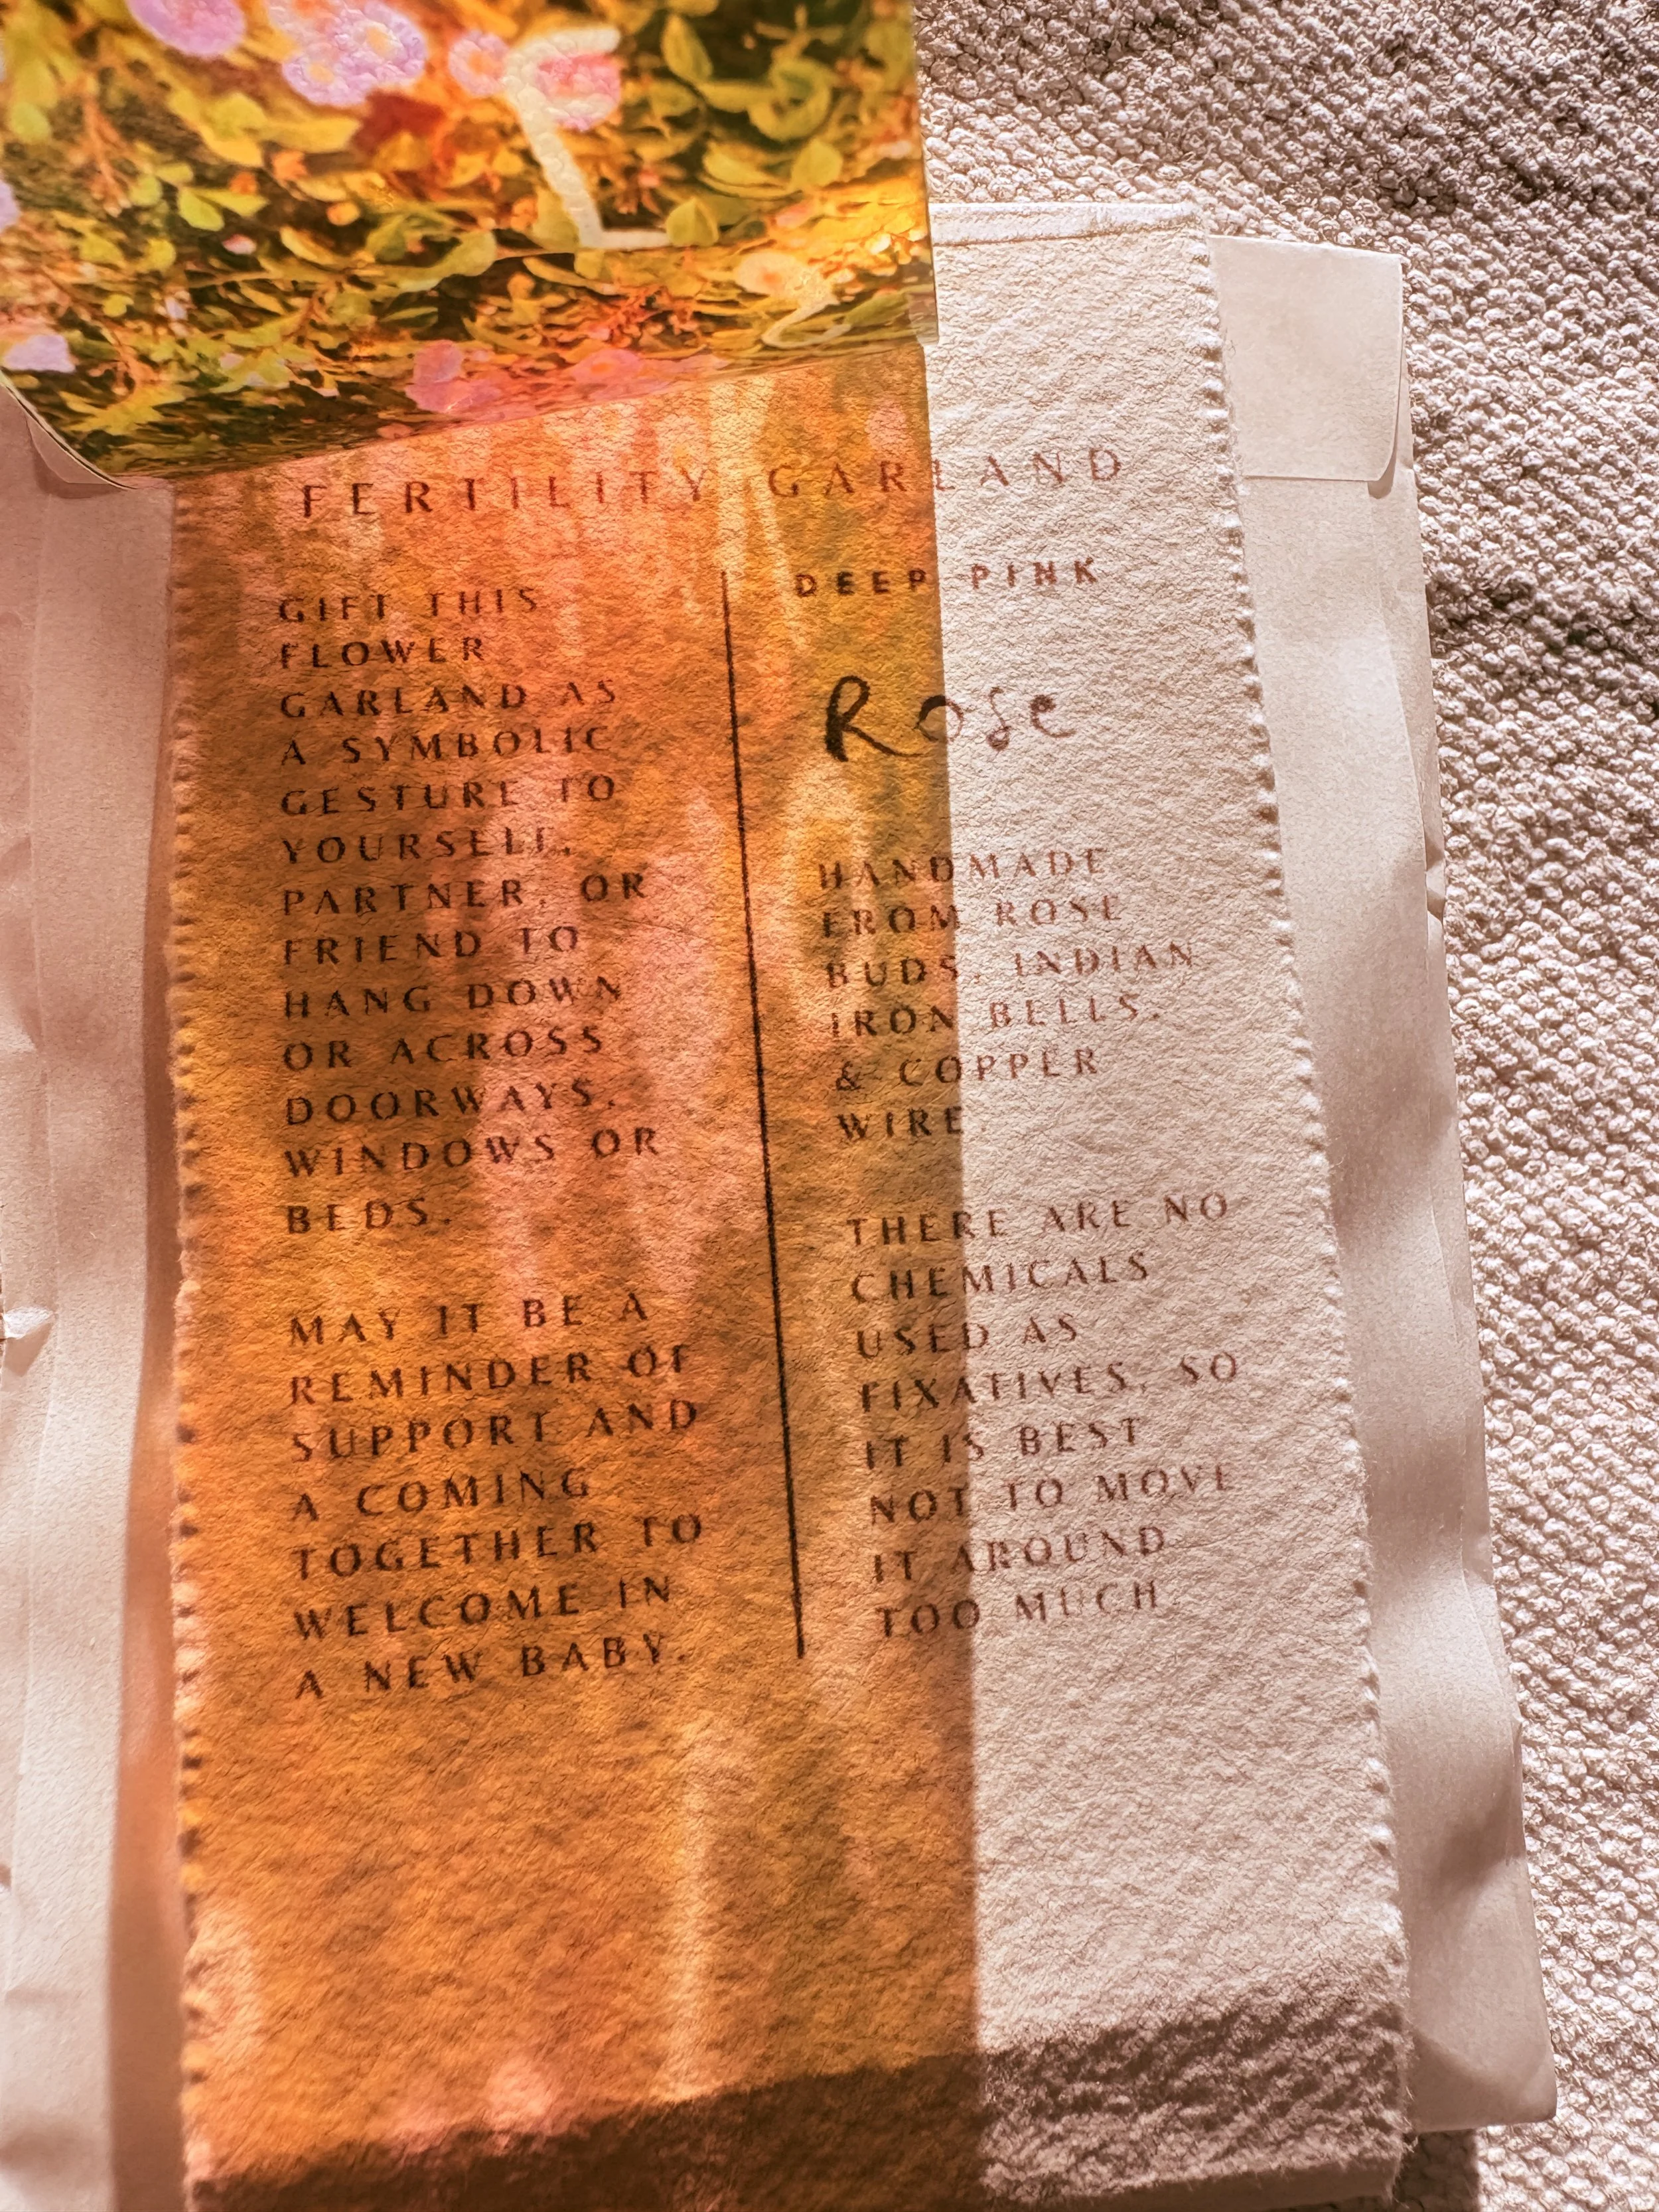 FERTILITY GARLAND
GIFT THIS
FLOWER
GARLAND AS
A SYMBOLIC
GESTURE TO
YOURSELF,
PARTNER, OR
FRIEND TO
HANG DOWN
OR ACROSS
DOORWAYS,
WINDOWS OR
BEDS.
MAY IT BE A
REMINDER OF
SUPPORT AND
A COMING
TOGETHER TO
WELCOME IN
A NEW BABY.
DEEP PINK
Rose
HANDMADE
FROM ROSE
BUDS, INDIAN
IRON BELLS,
& COPPER
WIRE.
THERE ARE NO
CHEMICALS
USED AS
FIXATIVES, SO
IT IS BEST
NOT TO MOVE
IT AROUND
TOO MUCH.